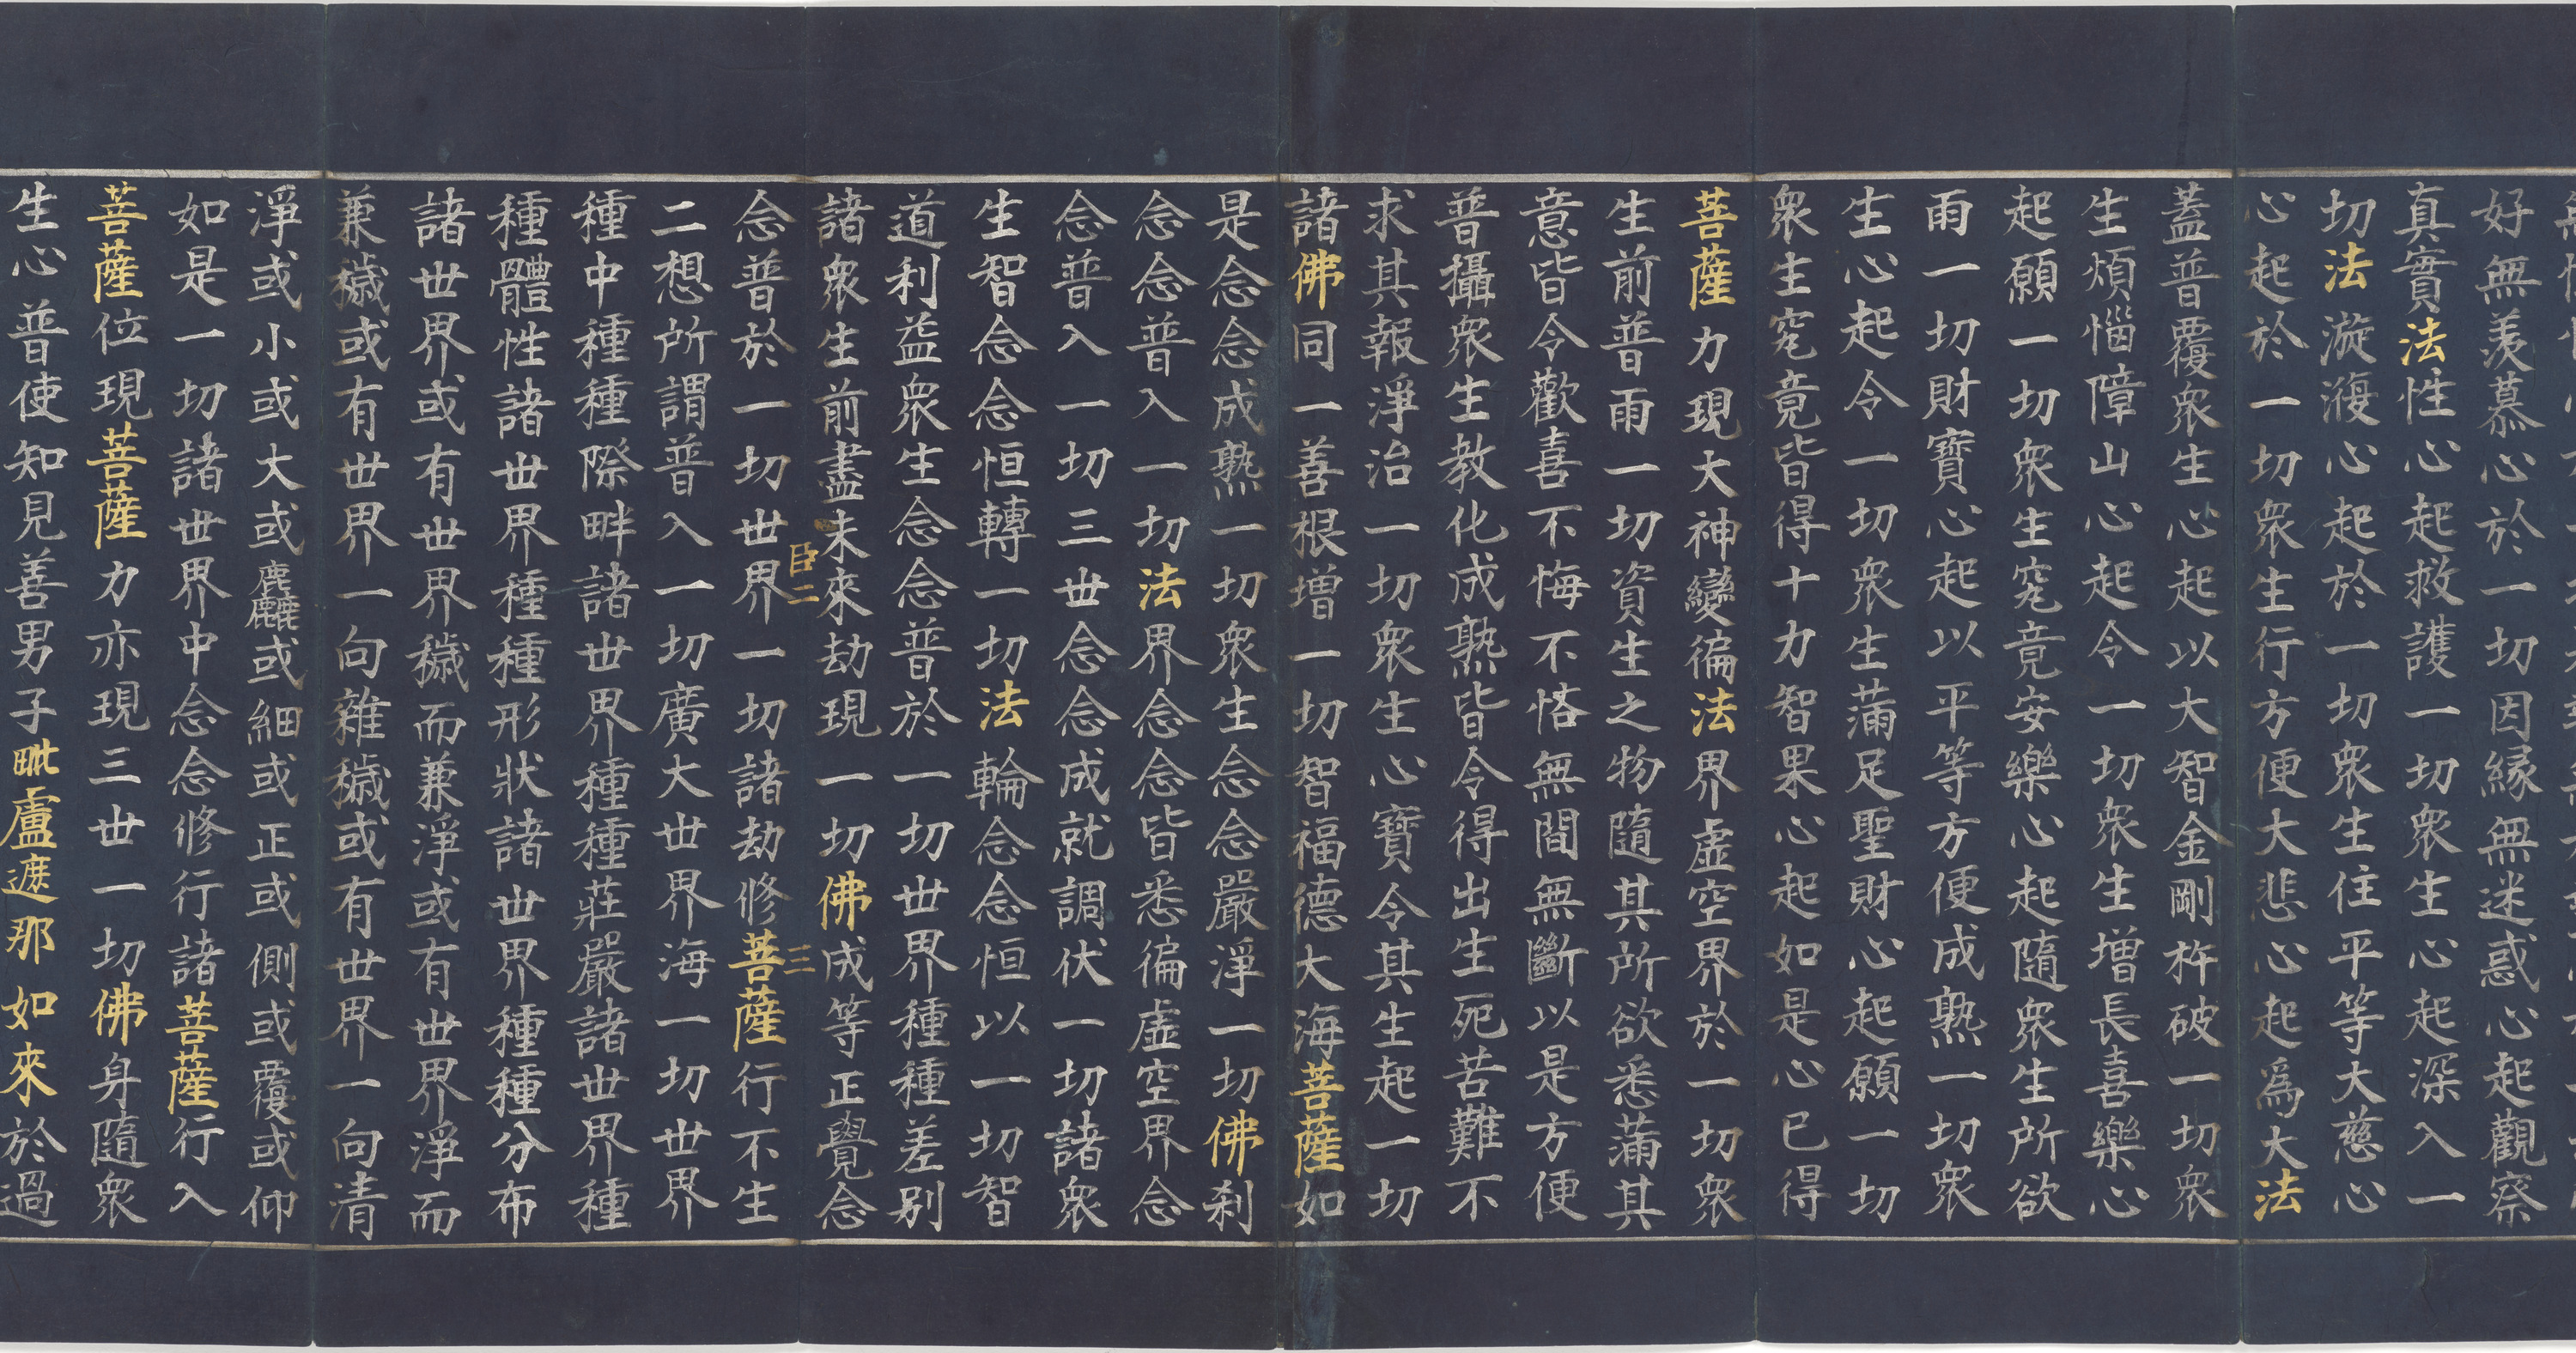 好無羨慕心於一切因緣無迷惑心起觀察
真實法性心起救護一切眾生心起深入一
切法漩澓心起於一切眾生住平等大慈心
心起於一切眾生行方便大悲心起為大法
蓋普覆眾生心起以大智金剛杵破一切眾
生煩惱障山心起令一切眾生增長喜樂心
起願一切眾生究竟安樂心起隨眾生所欲
雨一切財寶心起以平等方便成熟一切眾
生心起令一切眾生滿足聖財心起願一切
眾生究竟皆得十力智果心起如是心已得
菩薩力現大神變徧法界虛空界於一切眾
生前普雨一切資生之物隨其所欲悉滿其
意皆令歡喜不悔不悋無間無斷以是方便
普攝眾生教化成熟皆令得出生死苦難不
求其報淨治一切眾生心寶令其生起一切
諸佛同一善根增一切智福德大海菩薩如
是念念成熟一切眾生念念嚴淨一切佛刹
念念普入一切法界念念皆悉徧虛空界念
念普入一切三世念念成就調伏一切諸眾
生智念念恒轉一切法輪念念恒以一切智
道利益眾生念念普於一切世界種種差別
諸眾生前盡未來劫現一切佛成等正覺念
臣二 三
念普於一切世界一切諸劫修菩薩行不生
二想所謂普入一切廣大世界海一切世界
種中種種際畔諸世界種種莊嚴諸世界種
種體性諸世界種種形狀諸世界種種分布
諸世界或有世界穢而兼淨或有世界淨而
兼穢或有世界一向雜穢或有世界一向清
淨或小或大或麤或細或正或側或覆或仰
如是一切諸世界中念念修行諸菩薩行入
菩薩位現菩薩力亦現三世一切佛身隨眾
生心普使知見善男子毗盧遮那如來於過